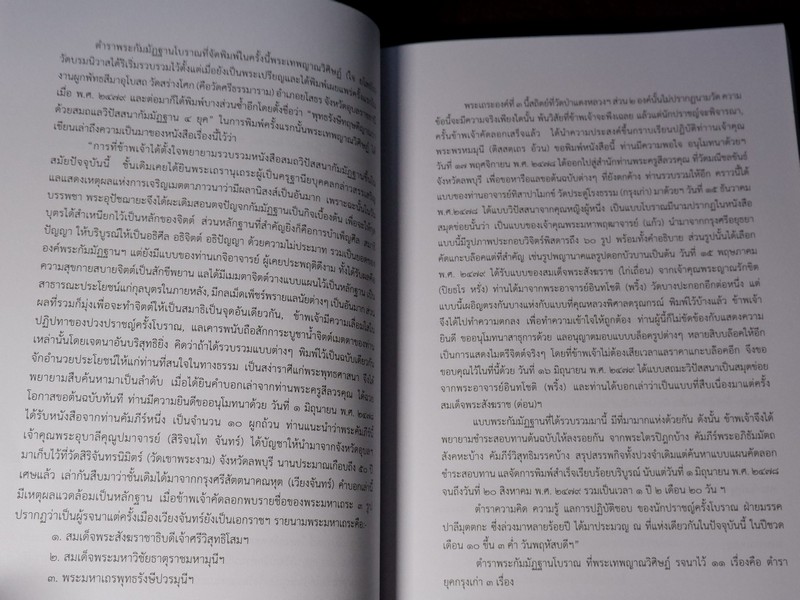 ตำราพระกัมมัฏฐานโบราณที่จัดพิมพ์ในครั้งนี้พระเทพญาณวิศิษฏ์
วัดบรมนิวาสได้ริเริ่มรวบรวมไว้ตั้งแต่เมื่อยังเป็นพระเปรียญและได้พิมพ์เผยแพร่ครั้งแรก
งานผูกพัทธสีมาอุโบสถ วัดสร่างโศก (คือวัดศรีธรรมาราม) อำเภอยโสธร จังหวัดอุบลราชธานี
เมื่อ พ.ศ. ๒๔๗๙ และต่อมาก็ได้พิมพ์บางส่วนซ้ำอีกโดยตั้งชื่อว่า
ด้วยสมถแลวิปัสสนากัมมัฏฐาน ๔ ยุค” ในการพิมพ์ครั้งแรกนั้นพระเทพญาณวิศิษฏ์ ได้
เขียนเล่าถึงความเป็นมาของหนังสือเรื่องนี้ไว้ว่า
“การที่ข้าพเจ้าได้ตั้งใจพยายามรวบรวมหนังสือสมถวิปัสสนากัมมัฏฐานขึ้นใน
สมัยปัจจุบันนี้ ชั้นเดิมเคยได้ยินพระเถรานุเถระผู้เป็นครูฐานิยบุคคลกล่าวสรรเสริญ
แลแสดงเหตุผลแห่งการเจริญเมตตาภาวนาว่ามีผลานิสงส์เป็นอันมาก เพราะฉะนั้นในวัน
บรรพชา พระอุปัชฌายะจึงได้ผะเดิมสอนตจปัญจกกัมมัฏฐานเป็นกิจเบื้องต้น เพื่อจะให้กุล
บุตรได้สำเหนียกไว้เป็นหลักของจิตต์ ส่วนหลักฐานที่สำคัญยิ่งก็คือการบำเพ็ญศีล สมาธิ
ปัญญา ให้บริบูรณ์ให้เป็นอธิศีล อธิจิตต์ อธิปัญญา ด้วยความไม่ประมาท รวมเป็นยอดแห่ง
องค์พระกัมมัฏฐานฯ แต่ยังมีแบบของท่านเกจิอาจารย์ ผู้เคยประพฤติดีงาม ทั้งได้รับผล
ความสุขกายสบายจิตต์เป็นสักขีพยาน แลได้มีเมมตาจิตต์วางแบบแผนไว้เป็นหลักฐาน เป็น
สาธารณะประโยชน์แก่กุลบุตรในภายหลัง, มีกลเม็ดเพ็ชร์พรายแลนัยต่างๆ เป็นอันมาก ส่วน
ผลที่รวมก็มุ่งเพื่อจะทำจิตต์ให้เป็นสมาธิเป็นจุดอันเดียวกัน, ข้าพเจ้ามีความเลื่อมใสใน
ปฏิปทาของปวงปราชญ์ครั้งโบราณ, แลเคารพนับถือสักการะบูชาน้ำจิตต์เมตตาของท่าน
เหล่านั้นโดยเจตนาอันบริสุทธิยิ่ง คิดว่าถ้าได้รวบรวมแบบต่างๆ พิมพ์ไว้เป็นฉบับเดียวกัน
จักอำนวยประโยชน์ให้แก่ท่านที่สนใจในทางธรรม เป็นสง่าราศีแก่พระพุทธศาสนา จึงได้
พยายามสืบค้นหามาเป็นลำดับ เมื่อได้ยินคำบอกเล่าจากท่านพระครูสีลวรคุณ ได้ถือ
โอกาสขอต้นฉบับทันที ท่านมีความยินดีขออนุโมทนาด้วย วันที่ ๑ มิถุนายน พ.ศ. ๒๔๗๘
ได้รับหนังสือจากท่านคัมภีร์หนึ่ง เป็นจำนวน ๑๐ ผูกถ้วน ท่านแนะนำว่าพระคัมภีร์นี้
เจ้าคุณพระอุบาลีคุณูปมาจารย์ (สิริจนฺโท จันทร์) ได้บัญชาให้นำมาจากจังหวัดอุบลฯ
มาเก็บไว้ที่วัดสิริจันทรนิมิตร์ (วัดเขาพระงาม) จังหวัดลพบุรี นานประมาณเกือบถึง ๕๐ ปี
เศษแล้ว เล่ากันสืบมาว่าชั้นเดิมได้มาจากกรุงศรีสัตตนาคณหุต (เวียงจันทร์) คำบอกเล่านี้
มีเหตุผลแวดล้อมเป็นหลักฐาน เมื่อข้าพเจ้าคัดลอกพบรายชื่อของพระมหาเถระ ๓ รูป
ปรากฏว่าเป็นผู้รจนาแต่ครั้งเมืองเวียงจันทร์ยังเป็นเอกราชฯ รายนามพระมหาเถระคือ-
๑. สมเด็จพระสังฆราชาธิบดีเจ้าศรีวิสุทธิโสมฯ
๒. สมเด็จพระมหาวิชัยธาตุราชมหามุนีฯ
๓. พระมหาเถรพุทธรังษีปวรมุนีฯ
พระเถระองค์ที่ ๓ นี้สถิตย์ที่วัดป่าแดงหลวงฯ ส่วน ๒ องค์นั้นไม่ปรากฏนามวัด ความ
ข้อนี้จะมีความจริงเพียงใดนั้น พ้นวิสัยที่ข้าพเจ้าจะพึงเฉลย แล้วแต่นักปราชญ์จะพิจารณา,
ครั้นข้าพเจ้าคัดลอกเสร็จแล้ว ได้นำความประสงค์ขึ้นกราบเรียนปฏิบัติท่านเจ้าคุณ
พระพรหมมุนี (ติสฺสตฺเถร อ้วน) ขอพิมพ์หนังสือนี้ ท่านมีความพอใจ อนุโมทนาด้วยฯ
วันที่ ๑๗ พฤศจิกายน พ.ศ. ๒๔๗๘ ได้ออกไปสู่สำนักท่านพระครูสีลวรคุณ ที่วัดมณีชลขันธ์
จังหวัดลพบุรี เพื่อขอหารือแลขอต้นฉบับต่างๆ ที่ยังตกค้าง ท่านรวบรวมให้อีก คราวนี้ได้
แบบของท่านอาจารย์ทิสาปาโมกข์ วัดประดู่โรงธรรม (กรุงเก่า) มาด้วยฯ วันที่ ๑๕ ธันวาคม
พ.ศ.๒๔๗๘ ได้แบบวิปัสสนาจากคุณหญิงผู้หนึ่ง เป็นแบบโบราณมีนามปรากฏในหนังสือ
สมุดข่อยนั้นว่า เป็นแบบของเจ้าคุณพระมหาพฤฒาจารย์ (แก้ว) นำมาจากกรุงศรีอยุธยา
แบบนี้มีรูปภาพประกอบวิจิตร์พิสดารถึง ๖๐ รูป พร้อมทั้งคำอธิบาย ส่วนรูปนั้นได้เลือก
คัดแกะบล็อคแต่ที่สำคัญ เช่นรูปพญานาคแลรูปดอกบัวบานเป็นต้น วันที่ ๑๕ พฤษภาคม
พ.ศ. ๒๔๗๙ ได้รับแบบของสมเด็จพระสังฆราช (ไก่เถื่อน) จากเจ้าคุณพระญาณรักขิต
(ปิยธโร หรั่ง) ท่านได้มาจากพระอาจารย์อินทโชติ (พริ้ง) วัดบางปะกอกอีกต่อหนึ่ง แต่
แบบนี้เผอิญตรงกันบางแห่งกับแบบที่คุณหลวงพิศาลดรุณกรณ์ พิมพ์ไว้บ้างแล้ว ข้าพเจ้า
จึงได้ไปทำความตกลง เพื่อทำความเข้าใจให้ถูกต้อง ท่านผู้นี้ก็ไม่ขัดข้องกับแสดงความ
ยินดี ขออนุโมทนาสาธุการด้วย แลอนุญาตมอบแบบบล็อคฺรูปต่างๆ หลายสิบบล็อคให้อีก
เป็นการแสดงไมตรีจิตต์จริงๆ โดยที่ข้าพเจ้าไม่ต้องเสียเวลาแลราคาแกะบล็อคอีก จึงขอ
ขอบคุณไว้ในที่นี้ด้วย วันที่ ๑๖ มิถุนายน พ.ศ. ๒๔๗๙ ได้แบบสถมะวิปัสสนาเป็นสมุดข่อย
จากพระอาจารย์อินทโชติ (พริ้ง) และท่านได้บอกเล่าว่าเป็นแบบที่สืบเนื่องมาแต่ครั้ง
สมเด็จพระสังฆราช (ต่อน)ฯ
แบบพระกัมมัฏฐานที่ได้รวบรวมมานี้ มีที่มามากแห่งด้วยกัน ดังนั้น ข้าพเจ้าจึงได้
พยายามชำระสอบทานต้นฉบับให้ลงรอยกัน จากพระไตรปิฎกบ้าง คัมภีร์พระอภิธัมมัตถ
สังคหะบ้าง คัมภีร์วิสุทธิมรรคบ้าง สรุปสรรพกิจทั้งปวงจำเดิมแต่ค้นหาแบบแผนคัดลอก
ชำระสอบทาน แลจัดการพิมพ์สำเร็จเรียบร้อยบริบูรณ์ นับแต่วันที่ ๑ มิถุนายน พ.ศ. ๒๔๗๘
จนถึงวันที่ ๒๐ สิงหาคม พ.ศ. ๒๔๗๙ รวมเป็นเวลา ๑ ปี ๒ เดือน ๒๐ วัน ฯ
ตำราความคิด ความรู้ แลการปฏิบัติชอบ ของนักปราชญ์ครั้งโบราณ ฝ่ายมรรค
ปาลีมุตตกะ ซึ่งล่วงมาหลายร้อยปี ได้มาประมวญ ณ ที่แห่งเดียวกันในปัจจุบันนี้ ในปีชวด
เดือน ๑๐ ขึ้น ๓ ค่ำ วันพฤหัสบดีฯ”
ตำราพระกัมมัฏฐานโบราณ ที่พระเทพญาณวิศิษฏ์ รจนาไว้ ๑๑ เรื่องคือ ตำรา
ยุคกรุงเก่า ๓ เรื่อง